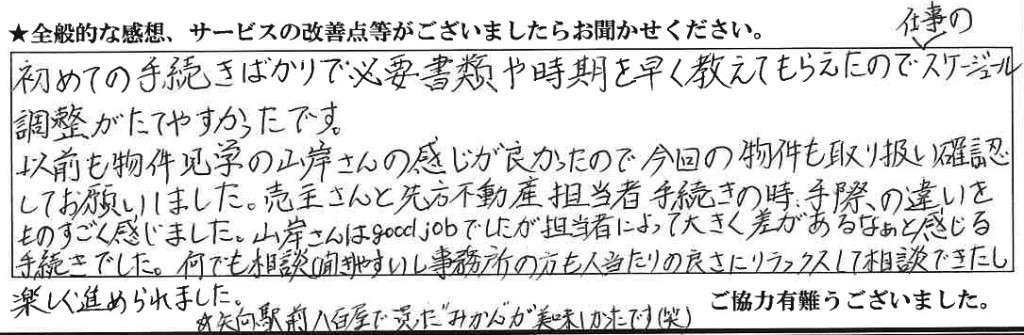 ★全般的な感想、サービスの改善点等がございましたらお聞かせください。
仕事の
初めての手続きばかりで必要書類や時期を早く教えてもらえたのでスケージュール
調整がたてやすかったです。
以前も物件見学の山岸さんの感じが良かったので今回の物件も取り扱い確認
してお願いしました。売主さんと先方不動産担当者手続きの時、手際、の違いを
ものすごく感じました。山岸さんはgood jobでしたが担当者によって大きく差があるなぁと感じる
手続きでした。何でも相談(聞き)やすいし事務所の方も人当たりの良さにリラックスして相談できたし
楽しく進められました。
ご協力有難うございました。
☆矢向駅前八百屋で買ったみかんが美味しかったです(笑)